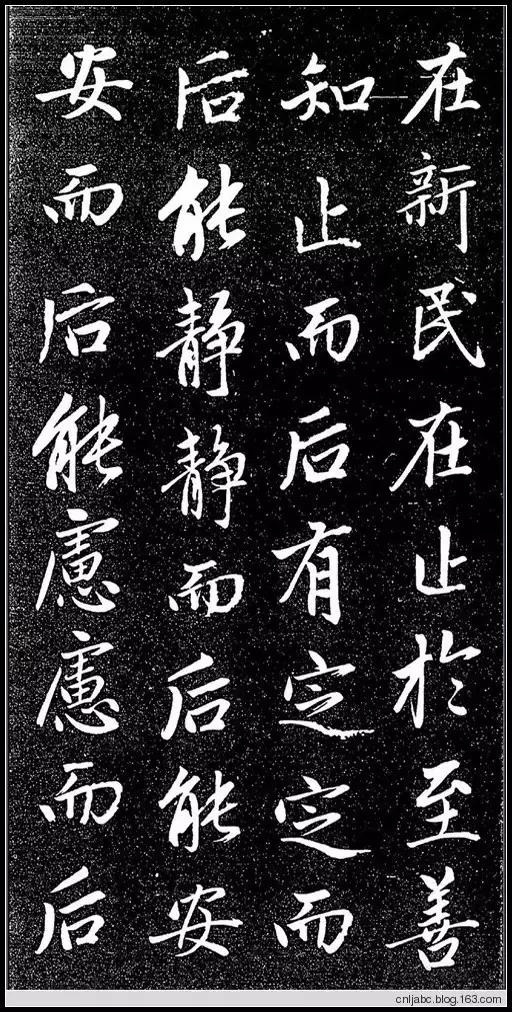 在新民在止於至善
知止而后有定定而
后能静静而后能安
安而后能慮慮而后
cnljabc.blog.163.com